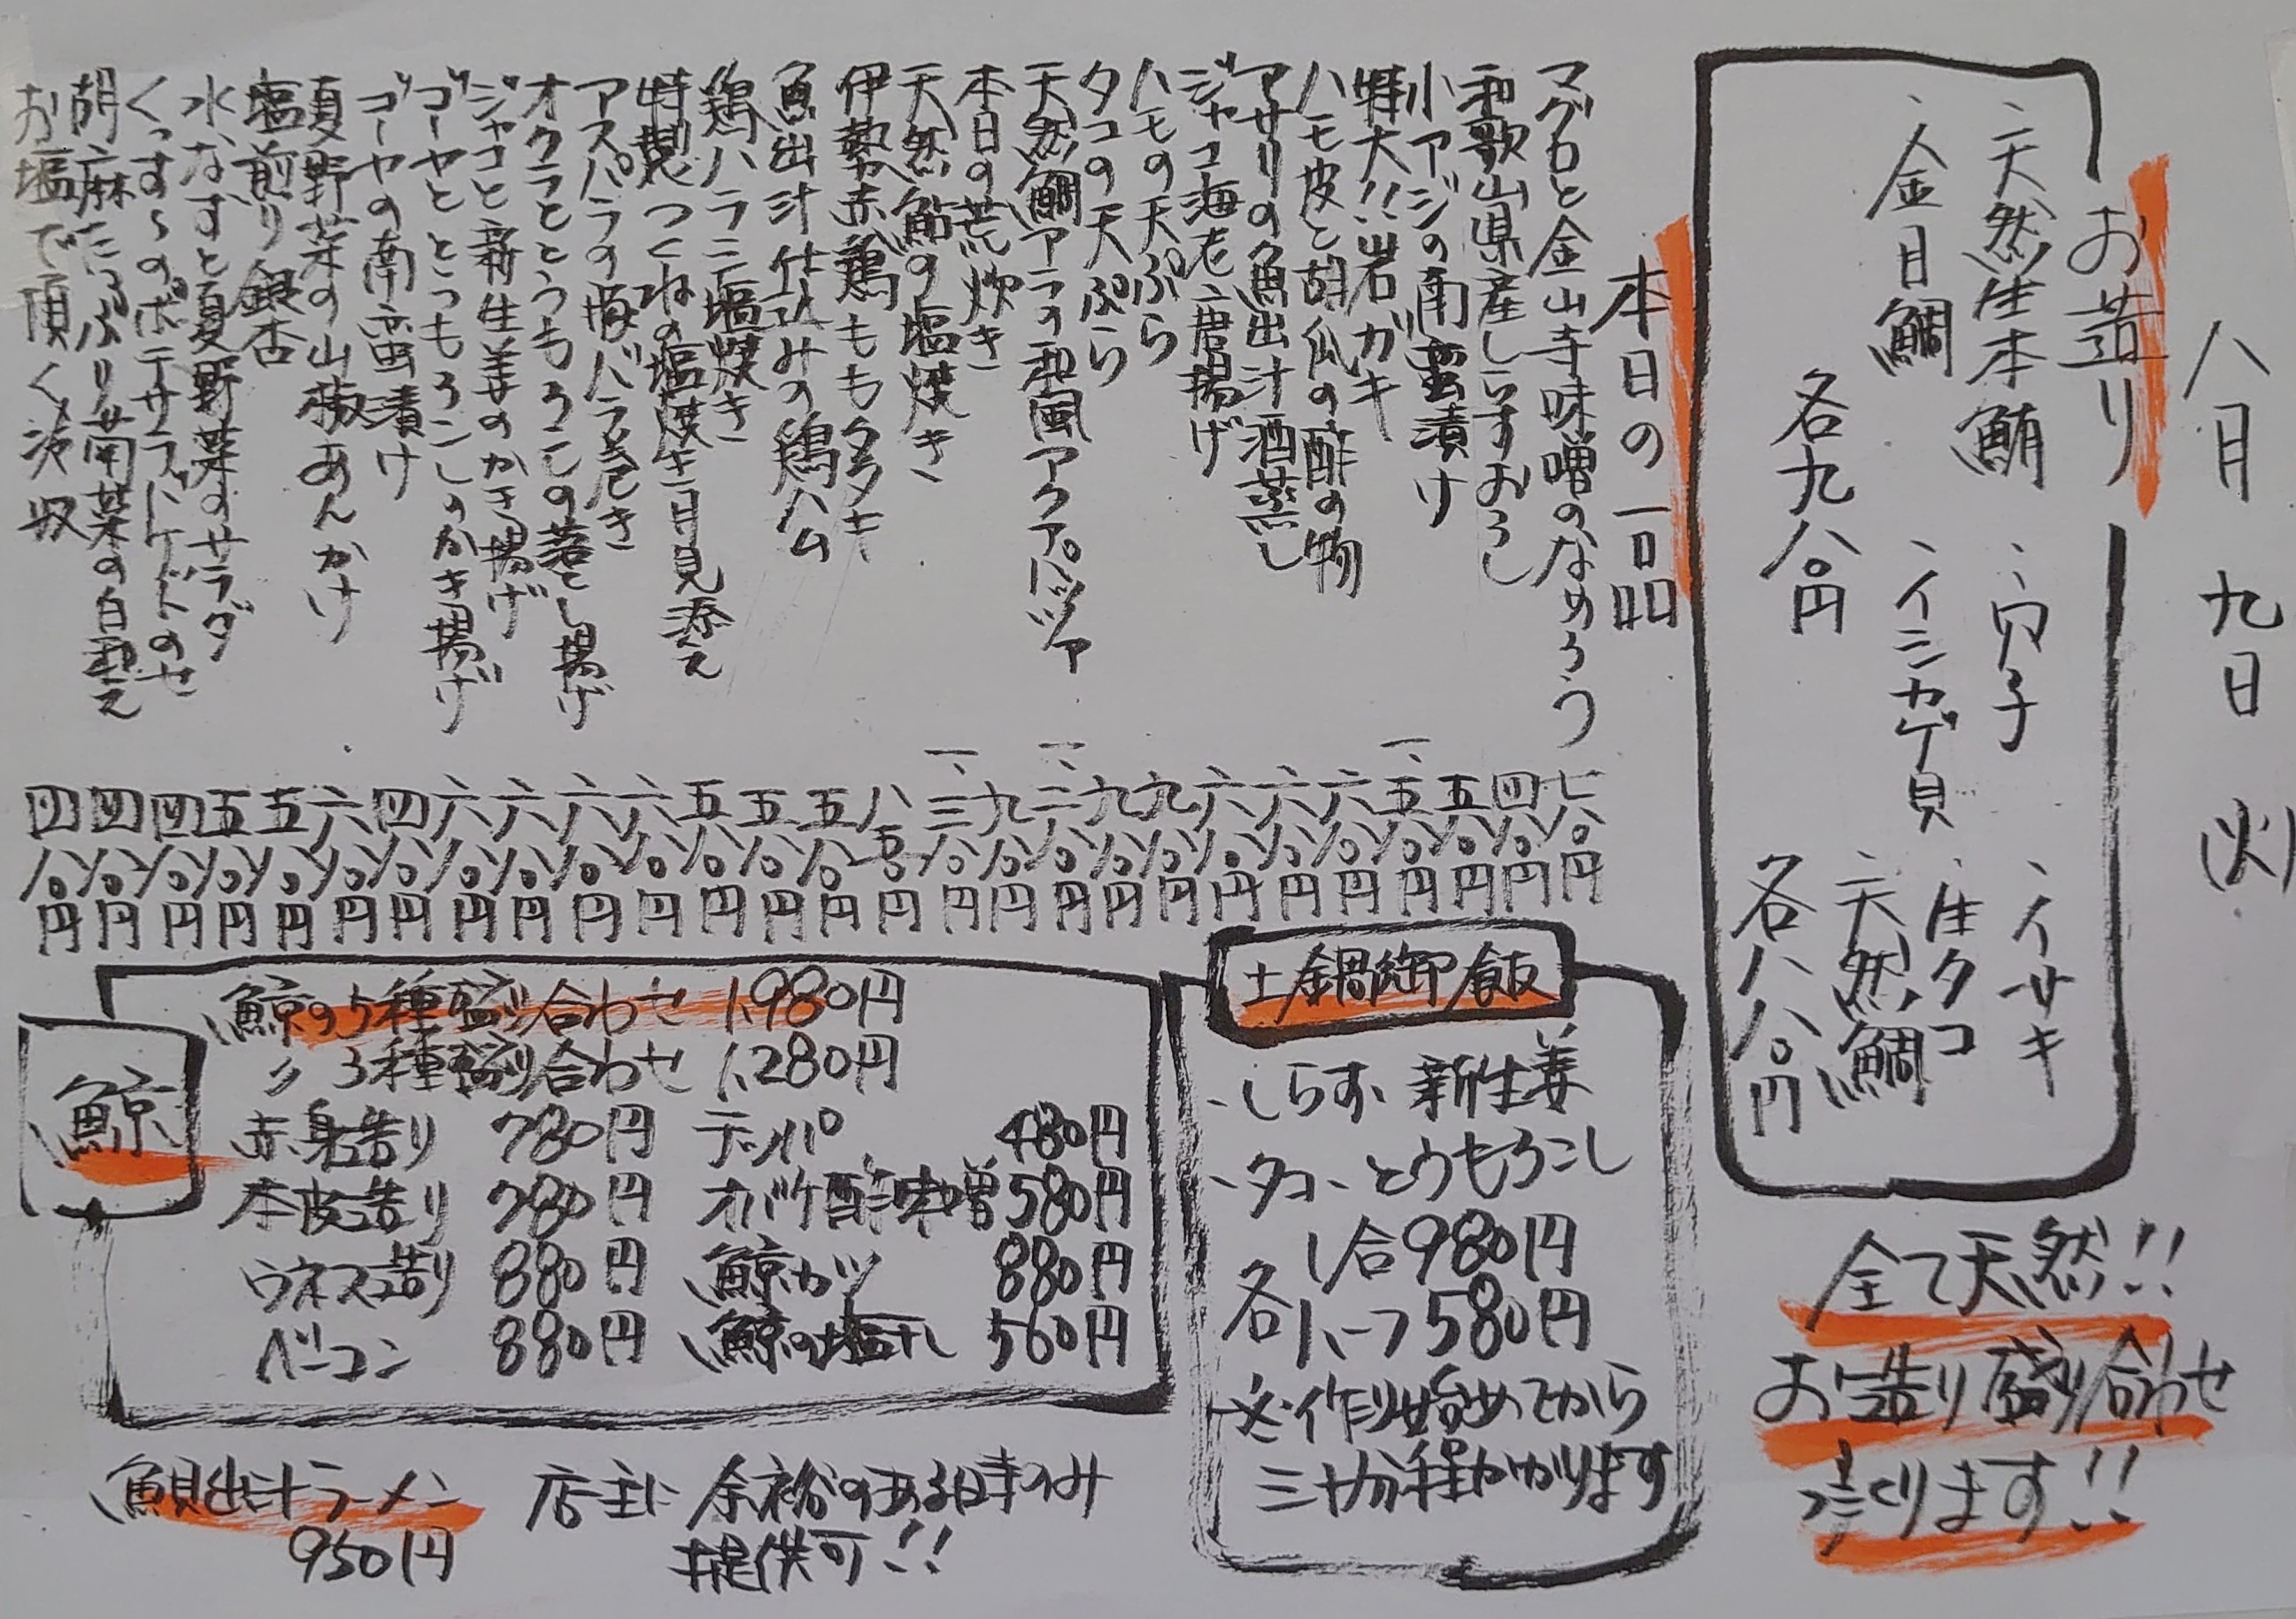 八月九日(火)
お造り
、天然生本鮪
、金目鯛
各九八〇円
、穴子
、イシカゲ貝
、イサキ
、生タコ
、天然鯛
各八八〇円
全て天然!!
お造り盛り合わせ
造ります!!
本日の一品
マグロと金山寺味噌のなめろう 七八〇円
和歌山県産しらすおろし 四八〇円
小アジの南蛮漬け 五八〇円
特大!!岩ガキ 一、五八〇円
ハモ皮と胡瓜の酢の物 六八〇円
アサリの魚出汁酒蒸し 六八〇円
ジャコ海老唐揚げ 六八〇円
ハモの天ぷら 九八〇円
タコの天ぷら 九八〇円
天然鯛アラの和風アクアパッツァ 一、二八〇円
本日の荒炊き 九八〇円
天然鮎の塩焼き 一、三八〇円
伊勢赤鶏ももタタキ 八五〇円
魚出汁仕込みの鶏ハム 五八〇円
鶏ハラミ塩焼き 五八〇円
特製つくねの塩焼き月見添え 五八〇円
アスパラの豚バラ巻き 六八〇円
オクラととうもろこしの落とし揚げ 六八〇円
ジャコと新生姜のかき揚げ 六八〇円
ゴーヤととうもろこしのかき揚げ 六八〇円
ゴーヤの南蛮漬け 四八〇円
夏野菜の山椒あんかけ 六八〇円
塩煎り銀杏 五八〇円
水なすと夏野菜のサラダ 五八〇円
くっすんのポテサラドケドのせ 四八〇円
胡麻たっぷり菊菜の白和え 四八〇円
お塩で頂く冷奴 四八〇円
土鍋御飯
・しらす、新生姜
・タコ、とうもろこし
各1合980円
ハーフ580円
※作り始めてから
三十分程かかります
鯨
鯨の5種盛り合わせ 1,980円
〃 3種盛り合わせ 1,280円
赤身造り 780円 テッパ 480円
本皮造り 780円 オバケ酢味噌 580円
ウネス造り 880円 鯨カツ 880円
ベーコン 880円 鯨の塩干し 560円
魚出汁ラーメン 店主に余裕のある時のみ
950円 提供可!!